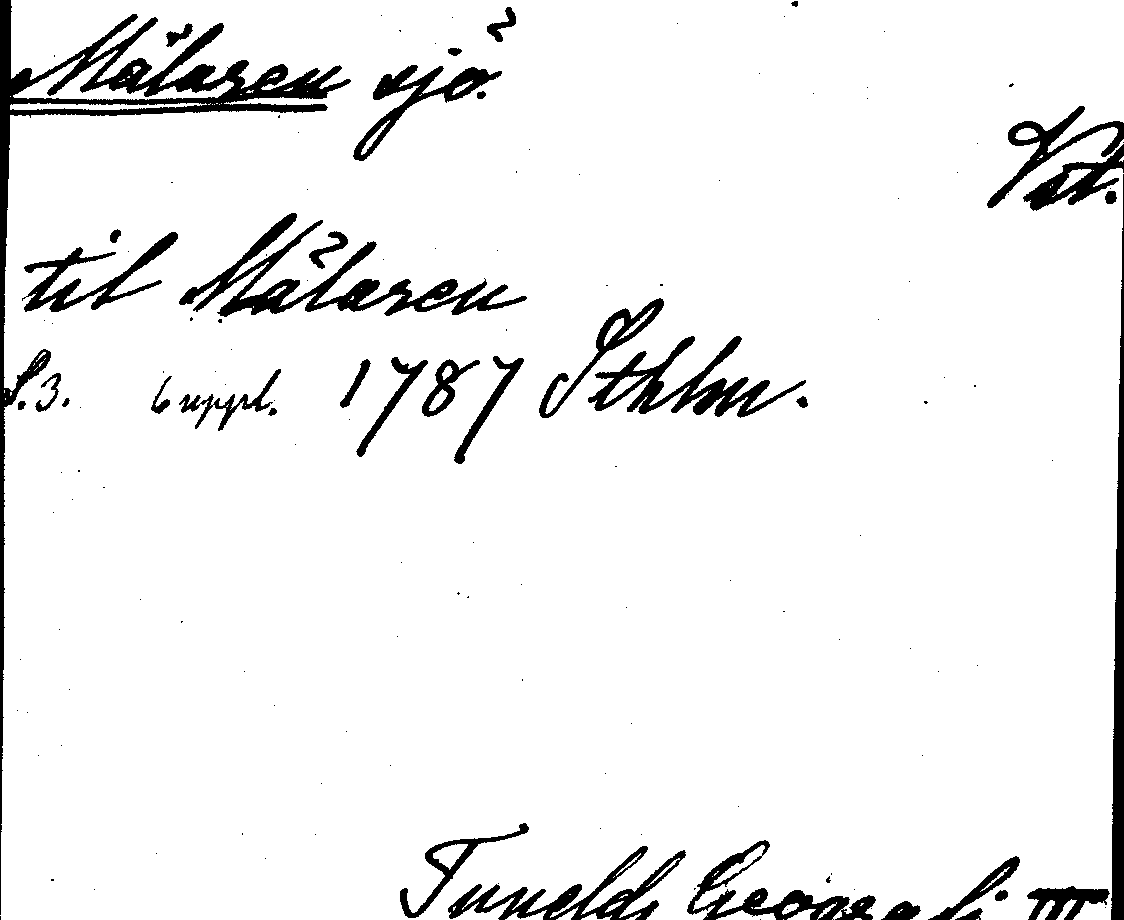 Mälaren sjö.
Vst.
til Mälaren
S. 3. 6 uppl. 1787 Sthlm.
Tunelds Geografi III